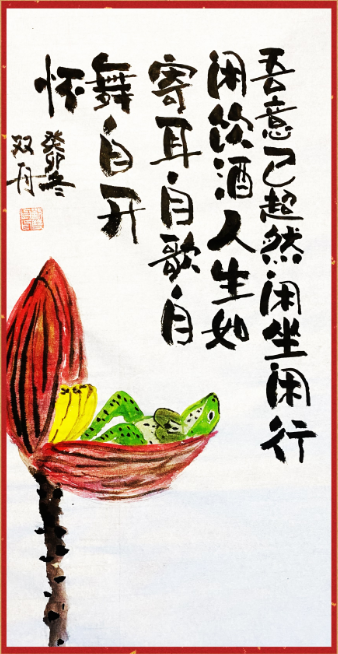 吾意已超然闲坐闲行
闲饮酒人生如
寄耳自歌自
舞自开
怀
癸卯冬
双舟